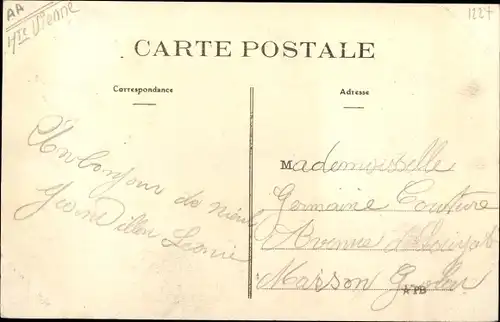 AA
Hte Vienne
1227
CARTE POSTALE
Correspondance
Adresse
Un bonjour de nieul
Léonie
Mademoiselle
Germaine Couture
Avenue
Maison
★PB